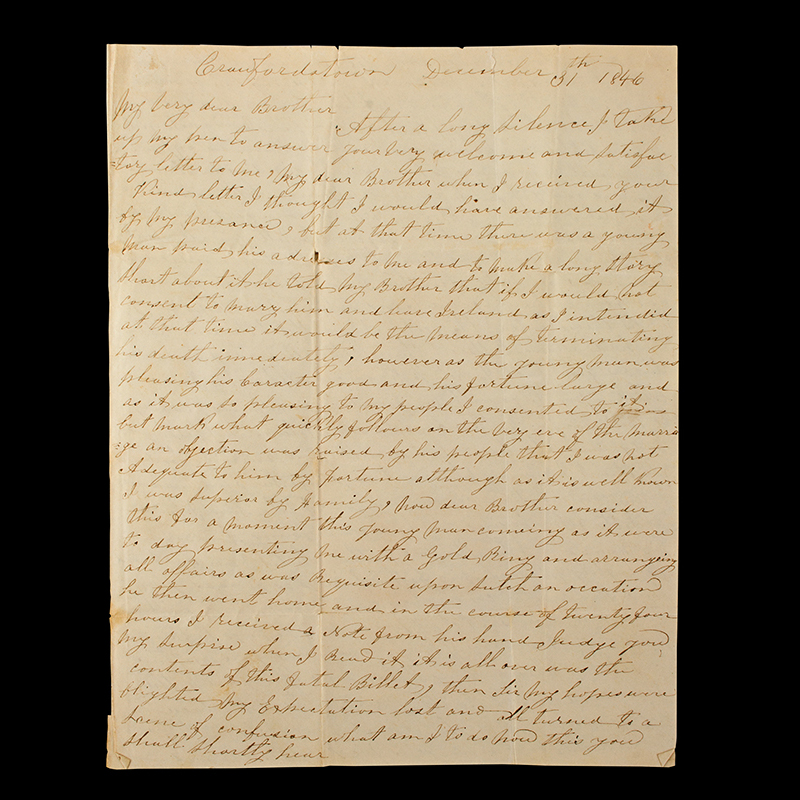 Crawfordstown December 31th 1846
My Very dear Brother
After a long Silence I take
up my pen to answer your very welcome and satisfac
=tory letter to me, My dear Brother when I received your
kind letter I thought I would have answered it
by my presance, but at that time there was a young
man paid his adresses to me and to make a long story
short about it he told My Brother that if I would not
consent to marry him and leave Ireland as I intended
at that time it would be the means of terminating
his death immedeately, however as the young man was
pleasing his Caracter good and his fortune large and
as it was so pleasing to my people I consented to it
but mark what quickly follows on the very eve of the marria
=ge an objection was raised by his people that I was not
Adequate to him by fortune although as it is well known
I was superior by Family, now dear Brother consider
this for a moment this young man comeing as it were
to day presenting me with a Gold Ring and arrangeing
all affairs as was Requisite upon sutch an occation
he then went home and in the course of twenty four
hours I received a Note from his hand Judge you
my surprise when I Read it it is all over was the
contents of this fatal Billet, then Sir my hopes were
blighted My Expectation lost and all turned to a
Scene of confusion what am I to do now this you
shall shortly hear